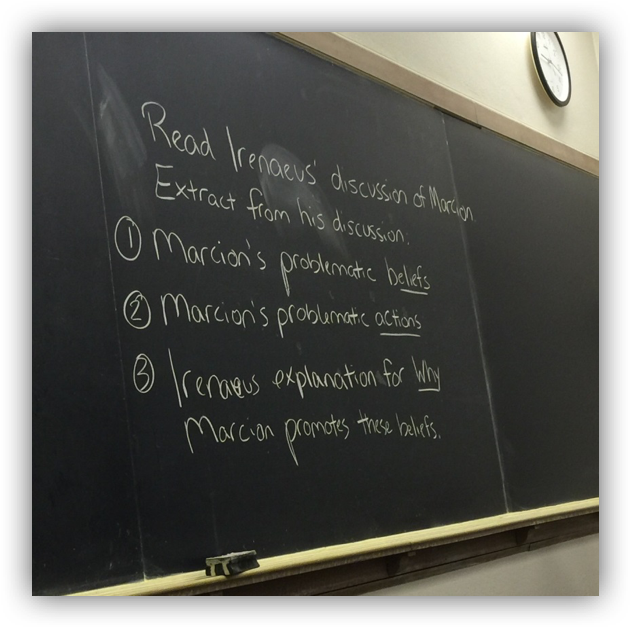 Read Irenaeus' discussion of Marcion
Extract from his discussion:
① Marcion's problematic beliefs
② Marcion's problematic actions
③ Irenaeus explanation for Why
Marcion promotes these beliefs.